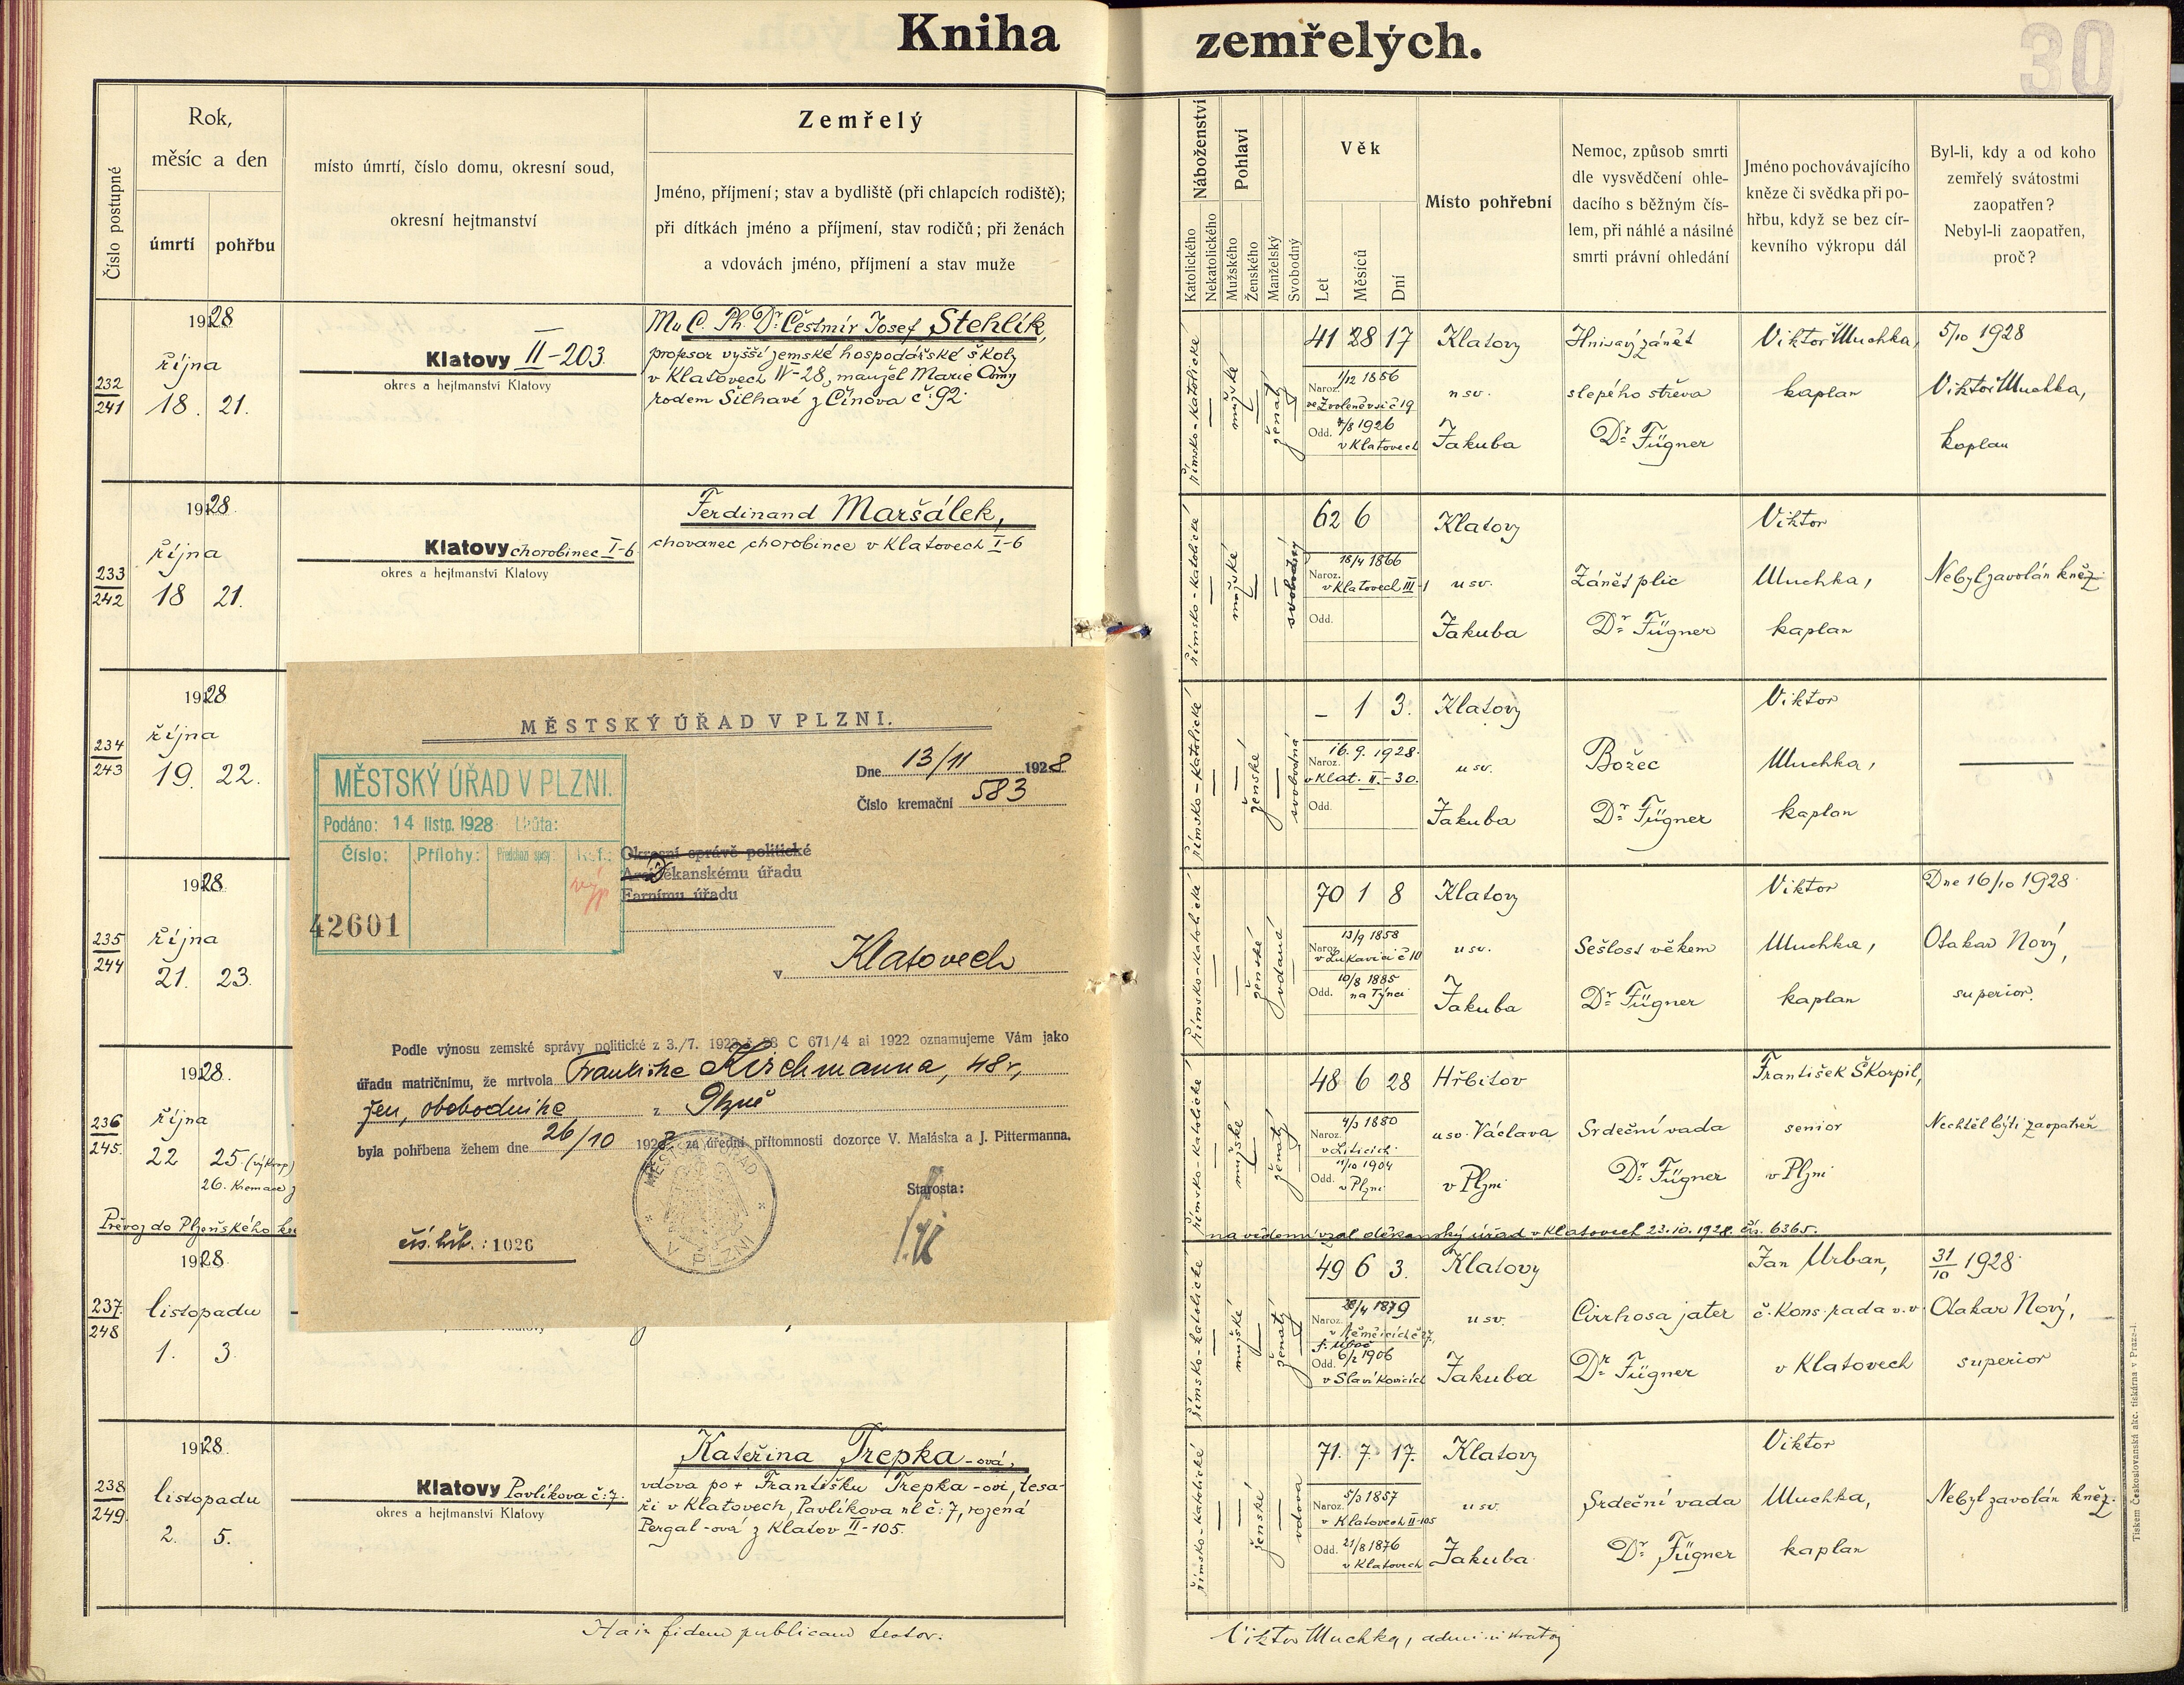 Kniha zemřelých.
30
Číslo postupné
Rok,
měsíc a den
úmrtí
pohřbu
místo úmrtí, číslo domu, okresní soud,
okresní hejtmanství
Zemřelý
Jméno, příjmení; stav a bydliště (při chlapcích rodiště);
při dítkách jméno a příjmení, stav rodičů; při ženách
a vdovách jméno, příjmení a stav muže
1928
října
232
241
18. 21.
Klatovy II-203.
okres a hejtmanství Klatovy
Mu C. Ph. Dr. Čestmír Josef Stehlík,
profesor vyšší zemské hospodářské školy
v Klatovech IV-28, manžel Marie Anny
rodem Šilhavé z Činova č. 92.
1928.
října
233
242
18 21.
Klatovy chorobinec I-6
okres a hejtmanství Klatovy
Ferdinand Maršálek,
chovanec chorobince v Klatovech I-6
1928
října
234
243
19. 22.
1928
října
235
244
21. 23.
1928.
října
236
245.
22 25. (výkrop)
26. Kremace
Převoz do Plzeňského
1928.
listopadu
237.
248
1. 3.
1928.
listopadu
238
249.
2. 5.
Klatovy Pavlíkova č: 7.
okres a hejtmanství Klatovy
Kateřina Trepka-ová,
vdova po + Františku Trepka-ovi, tesa-
ři v Klatovech, Pavlíkova ul č: 7, rozená
Pergal-ová z Klatov II-105.
MĚSTSKÝ ÚŘAD V PLZNI.
Dne 13/11 1928
Číslo kremační 583
MĚSTSKÝ ÚŘAD V PLZNI.
Podáno: 14 listp. 1928 Lhůta:
Číslo: Přílohy:
42601
Okresní správě politické
Arciděkanskému úřadu
Farnímu úřadu
v Klatovech
Podle výnosu zemské správy politické z 3./7. 1922 č. C 671/4 ai 1922 oznamujeme Vám jako
úřadu matričnímu, že mrtvola Františka Kirchmanna, 48 r,
žen, obchodníka z Plzně
byla pohřbena žehem dne 26/10 1928 za úřední přítomnosti dozorce V. Maláska a J. Pittermanna.
MĚSTSKÝ ÚŘAD V PLZNI
Starosta:
čís. hřb. : 1026
Náboženství
Katolického
Nekatolického
Pohlaví
Mužského
Ženského
Manželský
Svobodný
Věk
Let
Měsíců
Dní
Místo pohřební
Nemoc, způsob smrti
dle vysvědčení ohle-
dacího s běžným čís-
lem, při náhlé a násilné
smrti právní ohledání
Jméno pochovávajícího
kněze či svědka při po-
hřbu, když se bez cír-
kevního výkropu dál
Byl-li, kdy a od koho
zemřelý svátostmi
zaopatřen?
Nebyl-li zaopatřen,
proč?
římsko-katolické
mužské
ženatý
41 28 17
Naroz. 1/12 1886
ve Zvoleněvsi č 19
Odd. 7/8 1926
v Klatovech
Klatovy
u sv.
Jakuba
Hnisavý zánět
slepého střeva
Dr. Fügner
Viktor Muchka,
kaplan
5/10 1928
Viktor Muchka,
kaplan
římsko-katolické
mužské
svobodný
62 6
Naroz. 18/4 1866
v Klatovech III-1
Odd.
Klatovy
u sv.
Jakuba
Zánět plic
Dr. Fügner
Viktor
Muchka,
kaplan
Nebyl zavolán kněz.
římsko-katolické
ženské
svobodná
- 1 3.
Naroz. 16. 9. 1928.
v Klat. II.-30.
Odd.
Klatovy
u sv.
Jakuba
Božec
Dr. Fügner
Viktor
Muchka,
kaplan
římsko-katolické
ženské
vdaná
70 1 8
Naroz. 13/9 1858
v Lukavici č 10
Odd. 10/8 1885
na Týnci
Klatovy
u sv.
Jakuba
Sešlost věkem
Dr. Fügner
Viktor
Muchka,
kaplan
Dne 16/10 1928
Otakar Nový,
superior.
římsko-katolické
mužské
ženatý
48 6 28
Naroz. 4/3 1880
v Liticích
Odd. 11/10 1904
v Plzni
Hřbitov
u sv. Václava
v Plzni
Srdeční vada
Dr. Fügner
František Škorpil,
senior
v Plzni
Nechtěl býti zaopatřen
na vědomí vzal děkanský úřad v Klatovech 23. 10. 1928. čís. 6365.
římsko-katolické
mužské
ženatý
49 6 3.
Naroz. 28/4 1879
v Němčicích č 27,
Odd. 6/2 1906
v Slavíkovicích
Klatovy
u sv.
Jakuba
Cirrhosa jater
Dr. Fügner
Jan Urban,
č. kons. rada v. v.
v Klatovech
31/10 1928.
Otakar Nový,
superior
římsko-katolické
ženské
vdova
71. 7. 17.
Naroz. 5/3 1857
v Klatovech II-105
Odd. 21/8 1876
v Klatovech
Klatovy
u sv.
Jakuba
Srdeční vada
Dr. Fügner
Viktor
Muchka,
kaplan
Nebyl zavolán kněz.
fidem publicam testor.
Viktor Muchka,
Tiskem Československá akc. tiskárna v Praze-I.